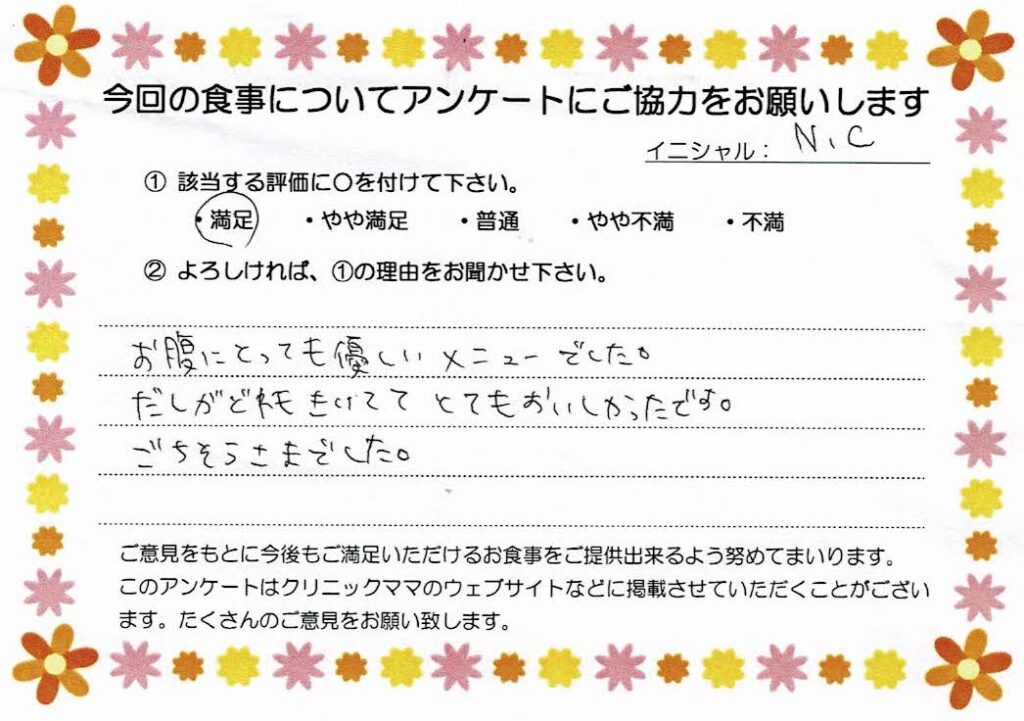 今回の食事についてアンケートにご協力をお願いします
イニシャル： N、C
① 該当する評価に〇を付けて下さい。
・満足 ・やや満足 ・普通 ・やや不満 ・不満
② よろしければ、①の理由をお聞かせ下さい。
お腹にとっても優しいメニューでした。
だしがどれも きいてて とてもおいしかったです。
ごちそうさまでした。
ご意見をもとに今後もご満足いただけるお食事をご提供出来るよう努めてまいります。
このアンケートはクリニックママのウェブサイトなどに掲載させていただくことがござい
ます。たくさんのご意見をお願い致します。